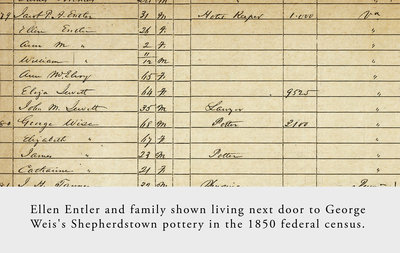 31 M Hotel Keeper 1.000 Va
Ellen Entler 26 F "
Ann M " 2 F "
William " 11/12 M "
Ann McElroy 65 F "
Eliza 64 F 9525 "
John M. 35 M Lawyer "
George Weise 68 M Potter 2100 "
Elizabeth " 67 F "
James " 23 M Potter "
Catharine " 21 F "
Ellen Entler and family shown living next door to George
Weis's Shepherdstown pottery in the 1850 federal census.